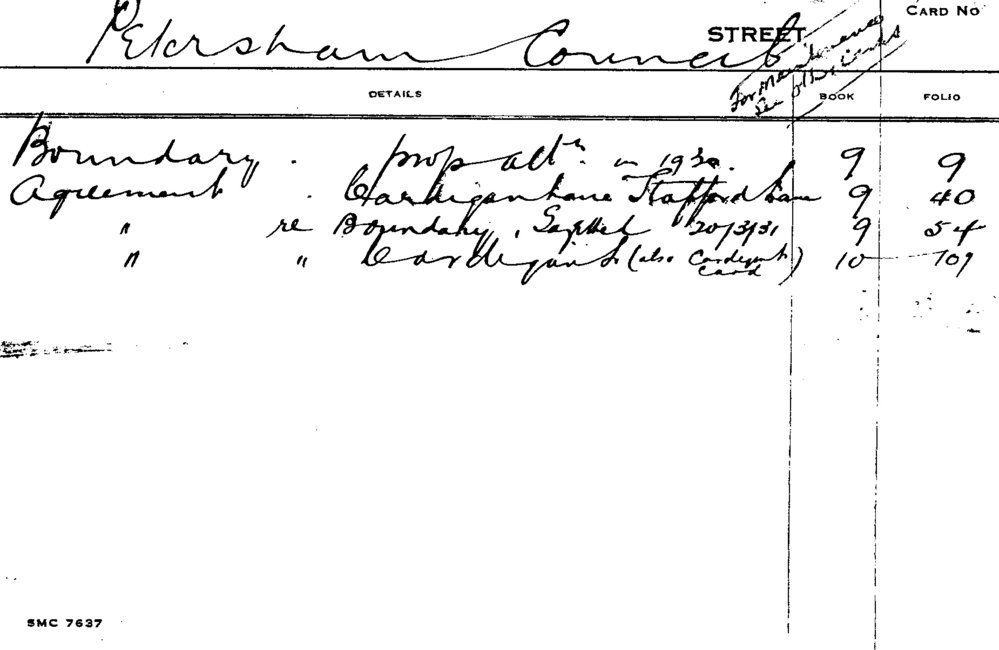 Petersham Council STREET CARD No
For Maintenance
See other cards
DETAILS BOOK FOLIO
Boundary . prop altn. in 1930. 9 9
Agreement . Cardigan Lane Stafford Lane 9 40
" re Boundary, 20/3/31 9 54
" " Cardigan St (also Cardigan St 10 109
Card)
SMC 7637